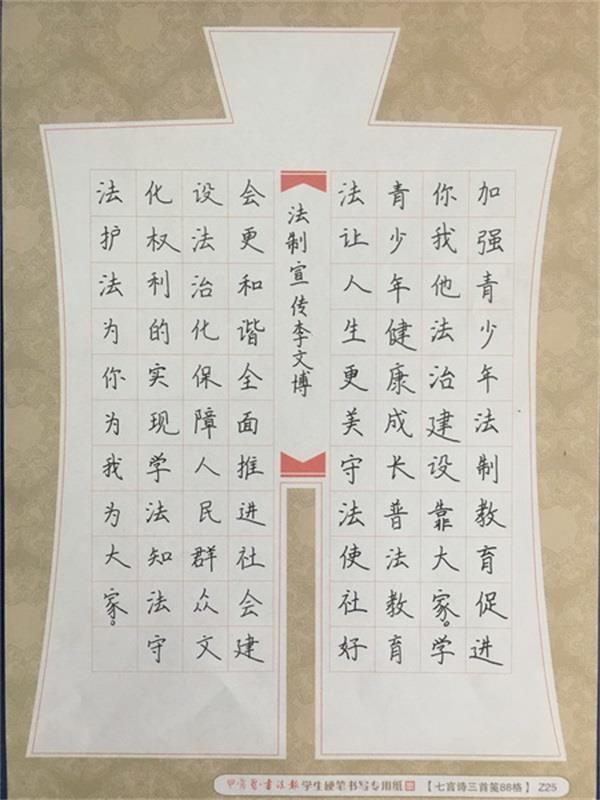 加强青少年法制教育促进
你我他法治建设靠大家。学
青少年健康成长普法教育
法让人生更美守法使社好
法制宣传李文博
会更和谐全面推进社会建
设法治化保障人民群众文
化权利的实现学法知法守
法护法为你为我为大家。
书法报 学生硬笔书写专用纸 【七言诗三首笺88格】 Z25